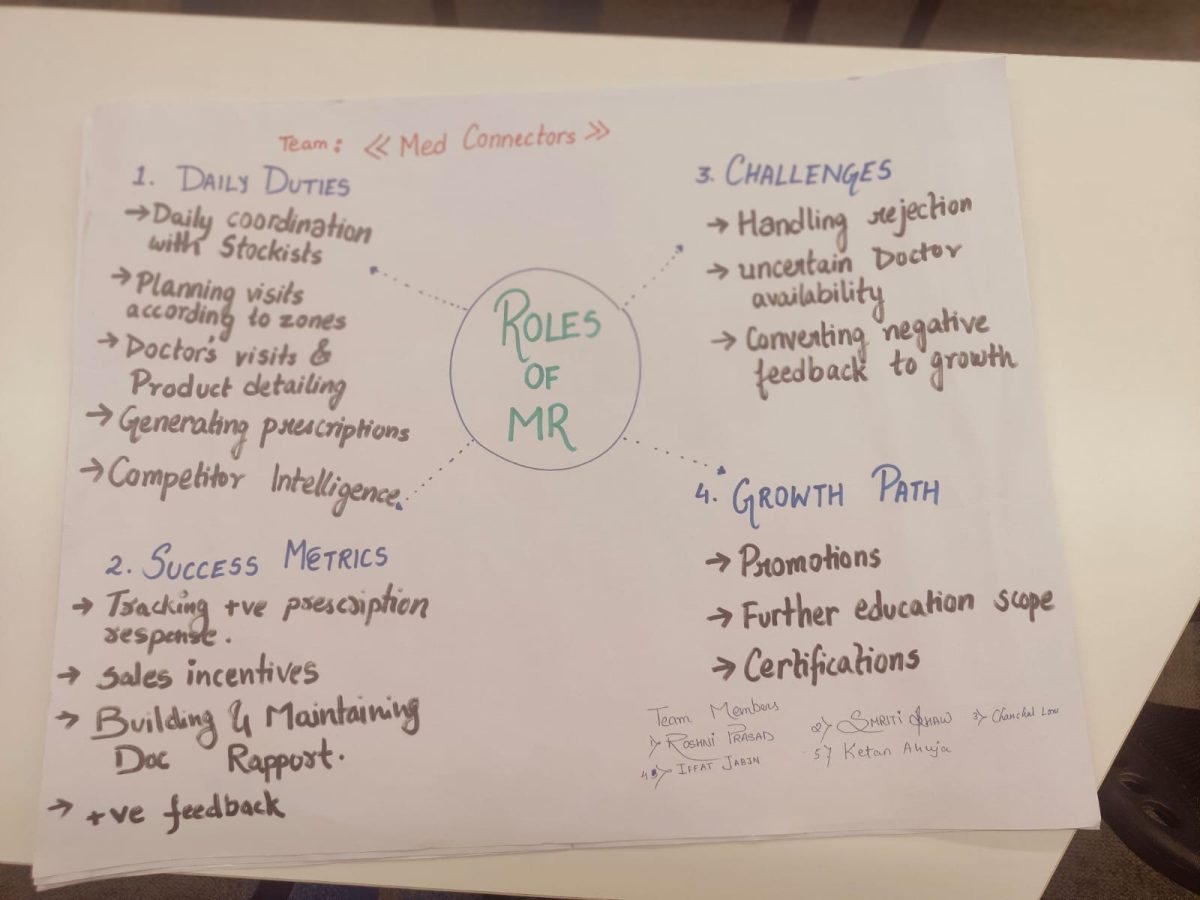 Team: << Med Connectors >>
1. DAILY DUTIES
→ Daily coordination
with Stockists
→ Planning visits
according to zones
→ Doctor's visits &
Product detailing
→ Generating prescriptions
→ Competitor Intelligence
ROLES
OF
MR
2. SUCCESS METRICS
→ Tracking +ve prescription
response.
→ Sales incentives
→ Building & Maintaining
Doc Rapport.
→ +ve feedback
3. CHALLENGES
→ Handling rejection
→ uncertain Doctor
availability
→ Converting negative
feedback to growth
4. GROWTH PATH
→ Promotions
→ Further education scope
→ Certifications
Team Members
1) ROSHNI PRASAD
2) SMRITI SHAW
3) Chanchal
4) IFFAT JABIN
5) Ketan Ahuja